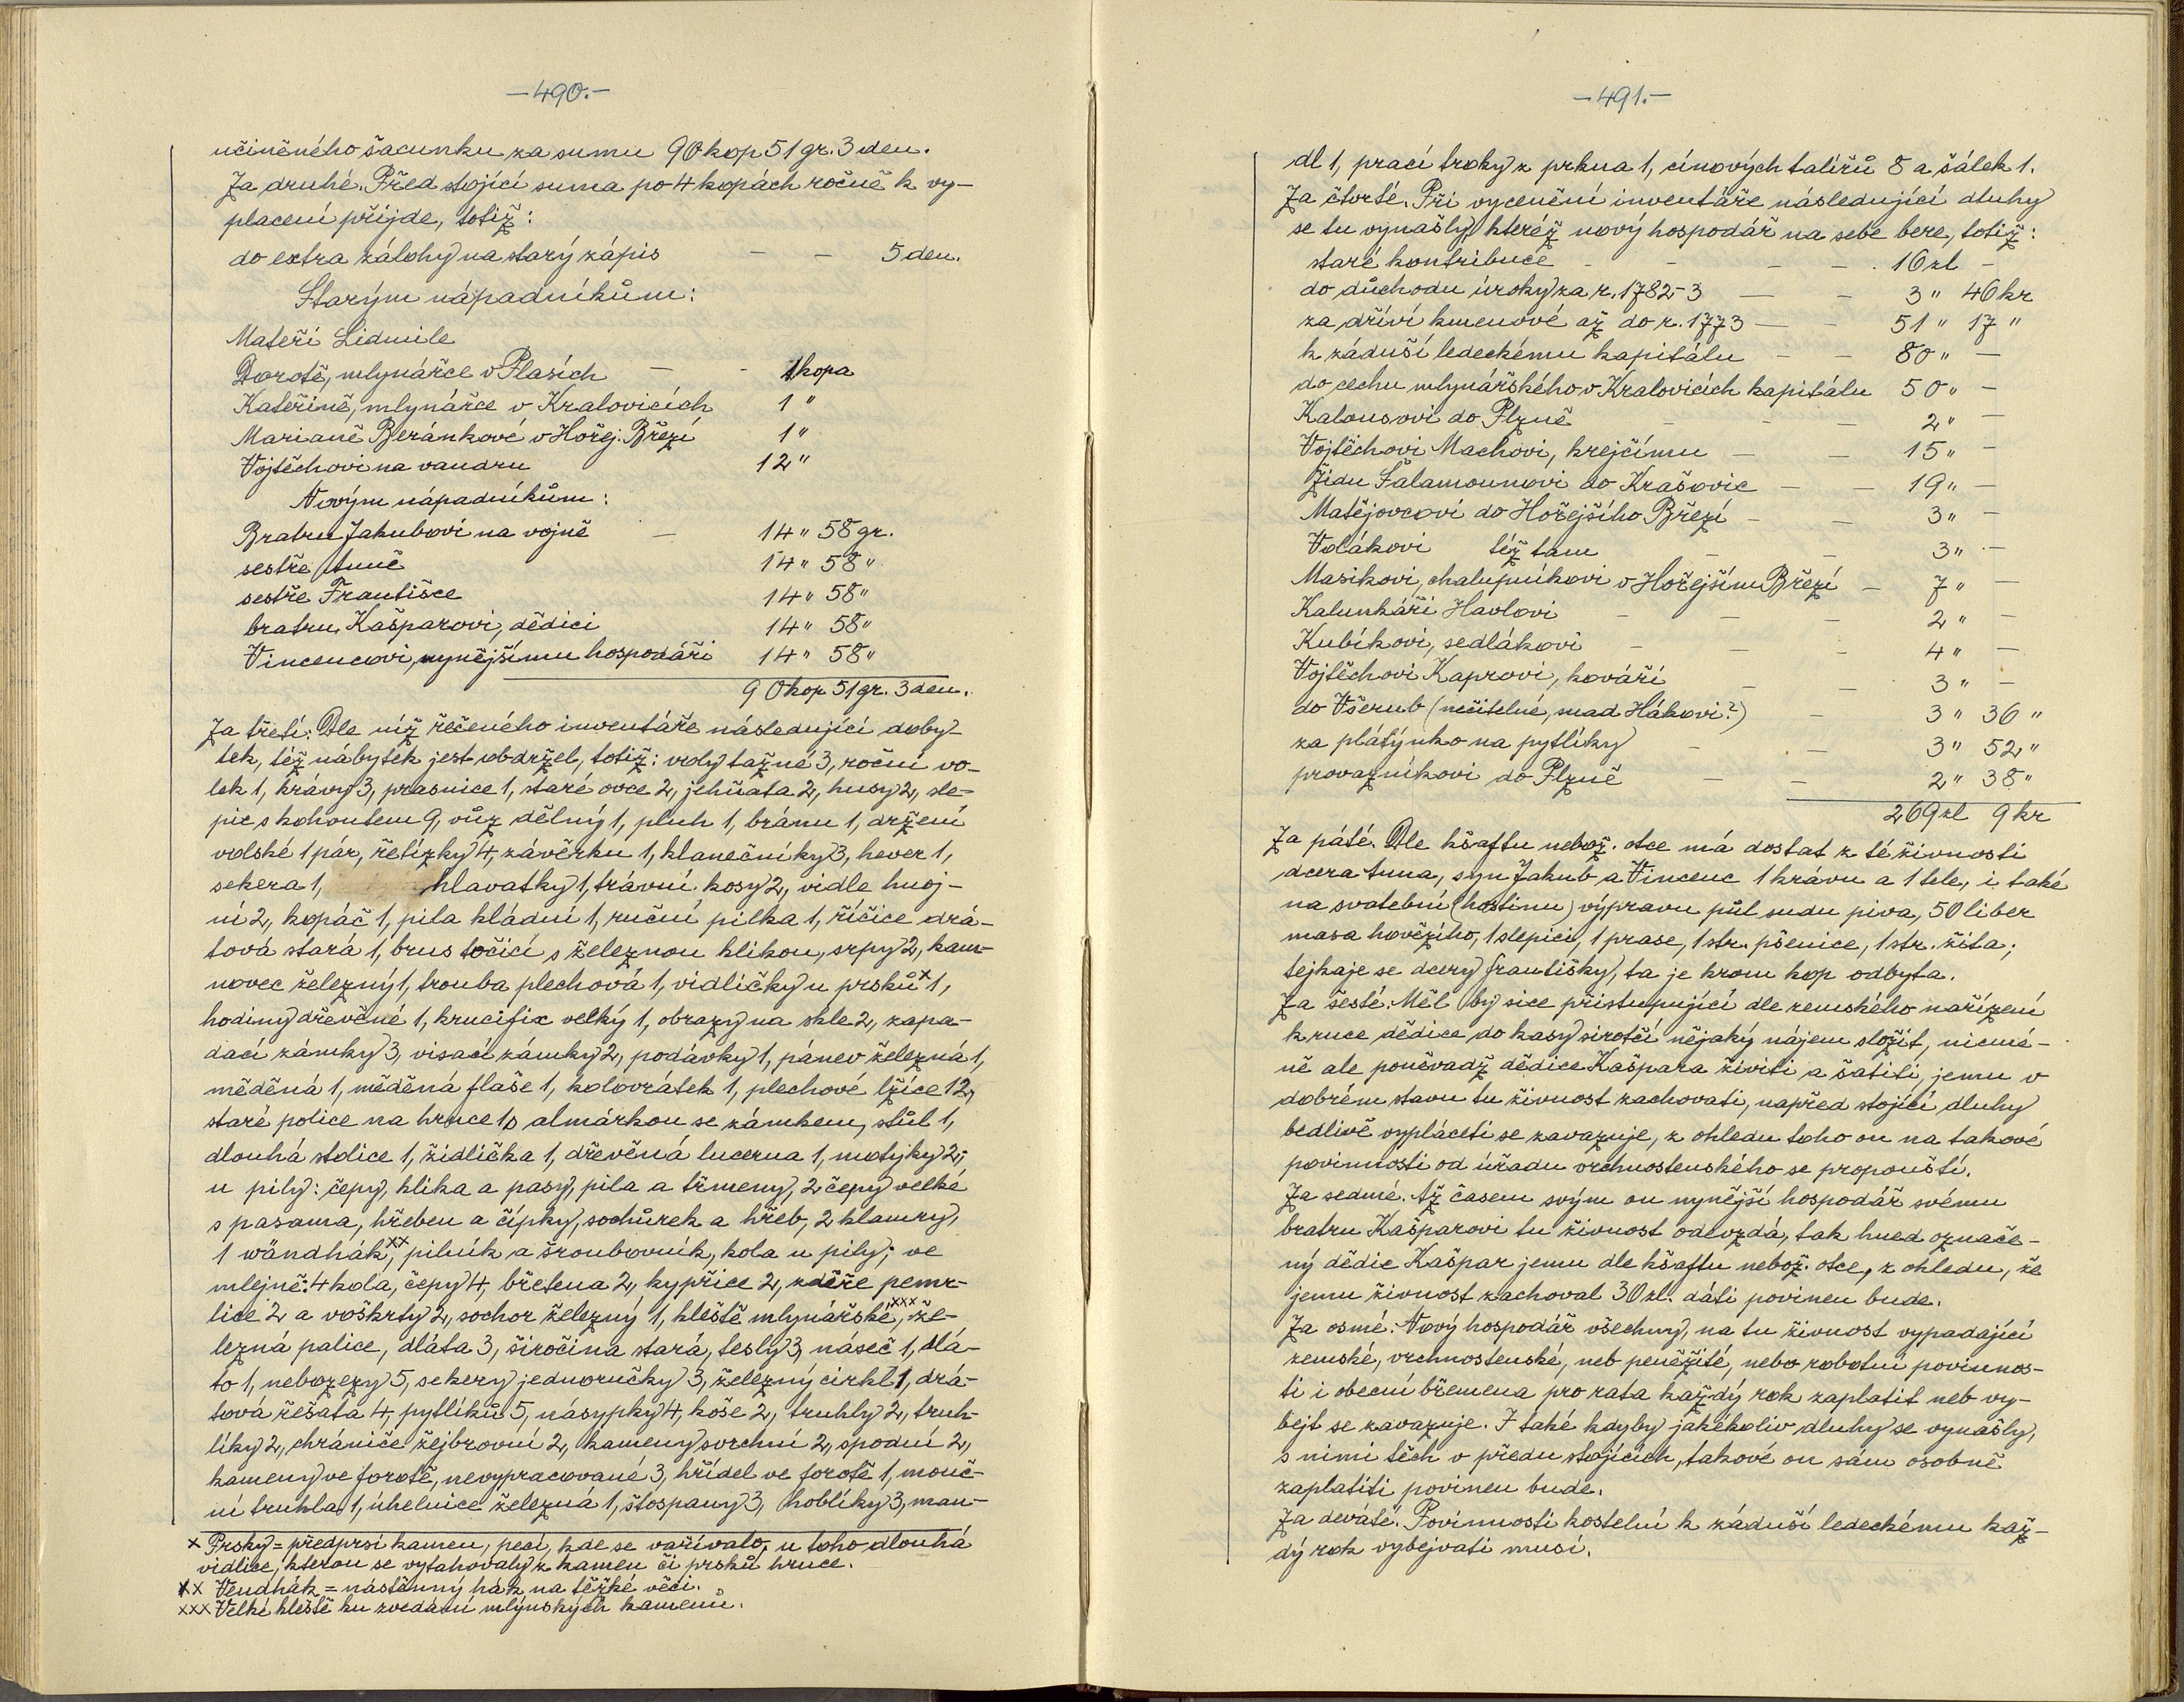 —490.—
učiněného šacunku za sumu 90 kop 51 gr. 3 den.
Za druhé. Před stojící suma po 4 kopách ročně k vy-
placení přijde, totiž:
do extra zálohy na starý zápis — — 5 den.
Starým nápadníkům:
Mateři Lidmile
Dorotě, mlynářce v Plasích — - 1 kopa
Kateřině, mlynářce v Kralovicích 1 "
Marianě Beránkové v Hořej. Březí 1 "
Vojtěchovi na vandru 12 "
Novým nápadníkům:
Bratru Jakubovi na vojně — 14 " 58 gr.
sestře Anně 14 " 58 "
sestře Františce 14 " 58 "
bratru Kašparovi, dědici 14 " 58 "
Vincencovi, nynějšímu hospodáři 14 " 58 "
90 kop 51 gr. 3 den.
Za třetí: Dle níž řečeného inventáře následující doby-
tek, též nábytek jest obdržel, totiž: voly tažné 3, roční vo-
lek 1, krávy 3, prasnice 1, staré ovce 2, jehňata 2, husy 2, sle-
pic s kohoutem 9, vůz dělný 1, pluh 1, bránu 1, držení
volské 1 pár, řetízky 4, závěrku 1, klanečníky 3, hever 1,
sekera 1, hlavatky 1, trávní kosy 2, vidle hnoj-
ní 2, kopáč 1, pila kládní 1, ruční pilka 1, říčice drá-
tová stará 1, brus točicí s železnou klikou, srpy 2, kam-
novec železný 1, trouba plechová 1, vidličky u prsků x 1,
hodiny dřevěné 1, krucifix velký 1, obrazy na skle 2, zapa-
dací zámky 3, visací zámky 2, podávky 1, pánev železná 1,
měděná 1, měděná flaše 1, kolovrátek 1, plechové lžíce 12,
staré police na hrnce 1, s almárkou se zámkem, stůl 1,
dlouhá stolice 1, židlička 1, dřevěná lucerna 1, motyky 2;
u pily: čepy, klika a pasy, pila a třmeny, 2 čepy velké
s pasama, hřeben a čípky, sochůrek a hřeb, 2 klamry,
1 wändhák xx, pilník a šroubovník, kola u pily; ve
mlejně: 4 kola, čepy 4, břetena 2, kypřice 2, zděře pemr-
lice 2 a voškrty 2, sochor železný 1, kleště mlynářské xxx, že-
lezná palice, dláta 3, širočina stará, tesly 3, náseč 1, dlá-
to 1, nebozezy 5, sekery jednoručky 3, železný cirkl 1, drá-
tová řešata 4, pytlíků 5, násypky 4, koše 2, truhly 2, truh-
líky 2, chrániče žejbrovní 2, kameny svrchní 2, spodní 2,
kameny ve forotě, nevypracované 3, hřídel ve forotě 1, mouč-
ní truhla 1, úhelnice železná 1, štospany 3, hoblíky 3, man-
x Prsky = předprsí kamen, pecí, kde se vařívalo, u toho dlouhá
vidlice, kterou se vytahovaly z kamen či prsků hrnce.
xx Vendhák = nástěnný hák na těžké věci.
xxx Velké kleště ku zvedání mlýnských kamenů.
—491.—
dl 1, prací troky z prkna 1, cínových talířů 8 a šálek 1.
Za čtvrté. Při vycenění inventáře následující dluhy
se tu vynašly, kteréž nový hospodář na sebe bere, totiž:
staré kontribuce - — — — 16 zl —
do důchodu úroky za r. 1782-3 — — 3 " 46 kr
za dříví kmenové až do r. 1773 — — 51 " 17 "
k záduší ledeckému kapitálu — — 80 " —
do cechu mlynářského v Kralovicích kapitálu 50 " —
Kalousovi do Plzně — — — 2 " —
Vojtěchovi Machovi, krejčímu — — 15 " —
Židu Šalamounovi do Krašovic — — 19 " —
Matějovcovi do Hořejšího Březí — — 3 " —
Volákovi též tam — — 3 " —
Masikovi, chalupníkovi v Hořejším Březí — 7 " —
Kalunkáři Havlovi — — — 2 " —
Kubíkovi, sedlákovi — — - 4 " —
Vojtěchovi Kaprovi, kováři — — 3 " —
do Všerub (nečitelné, snad Hákovi?) — 3 " 36 "
za plátýnko na pytlíky — — 3 " 52 "
provazníkovi do Plzně — — 2 " 38 "
269 zl 9 kr
Za páté. Dle kšaftu nebož. otce má dostat z té živnosti
dcera Anna, syn Jakub a Vincenc 1 krávu a 1 tele, i také
na svatební (hostinu) výpravu půl sudu piva, 50 liber
masa hovězího, 1 slepici, 1 prase, 1 str. pšenice, 1 str. žita;
tejkaje se dcery Františky, ta je krom kop odbyta.
Za šesté. Měl by sice přistupující dle zemského nařízení
k ruce dědice do kasy sirotčí nějaký nájem složit, nicmé-
ně ale poněvadž dědice Kašpara živiti a šatiti, jemu v
dobrém stavu tu živnost zachovati, napřed stojící dluhy
bedlivě vypláceti se zavazuje, z ohledu toho on na takové
povinnosti od úřadu vrchnostenského se propouští.
Za sedmé. Až časem svým on nynější hospodář svému
bratru Kašparovi tu živnost odevzdá, tak hned označe-
ný dědic Kašpar jemu dle kšaftu nebož. otce, z ohledu, že
jemu živnost zachoval 30 zl. dáti povinen bude.
Za osmé. Nový hospodář všechny, na tu živnost vypadající
zemské, vrchnostenské, neb peněžité, nebo robotní povinnos-
ti i obecní břemena pro rata každý rok zaplatit neb vy-
bejt se zavazuje. I také kdyby jakékoliv dluhy se vynašly,
s nimi těch v předu stojících, takové on sám osobně
zaplatiti povinen bude.
Za deváté. Povinnosti kostelní k záduší ledeckému kaž-
dý rok vybejvati musí.